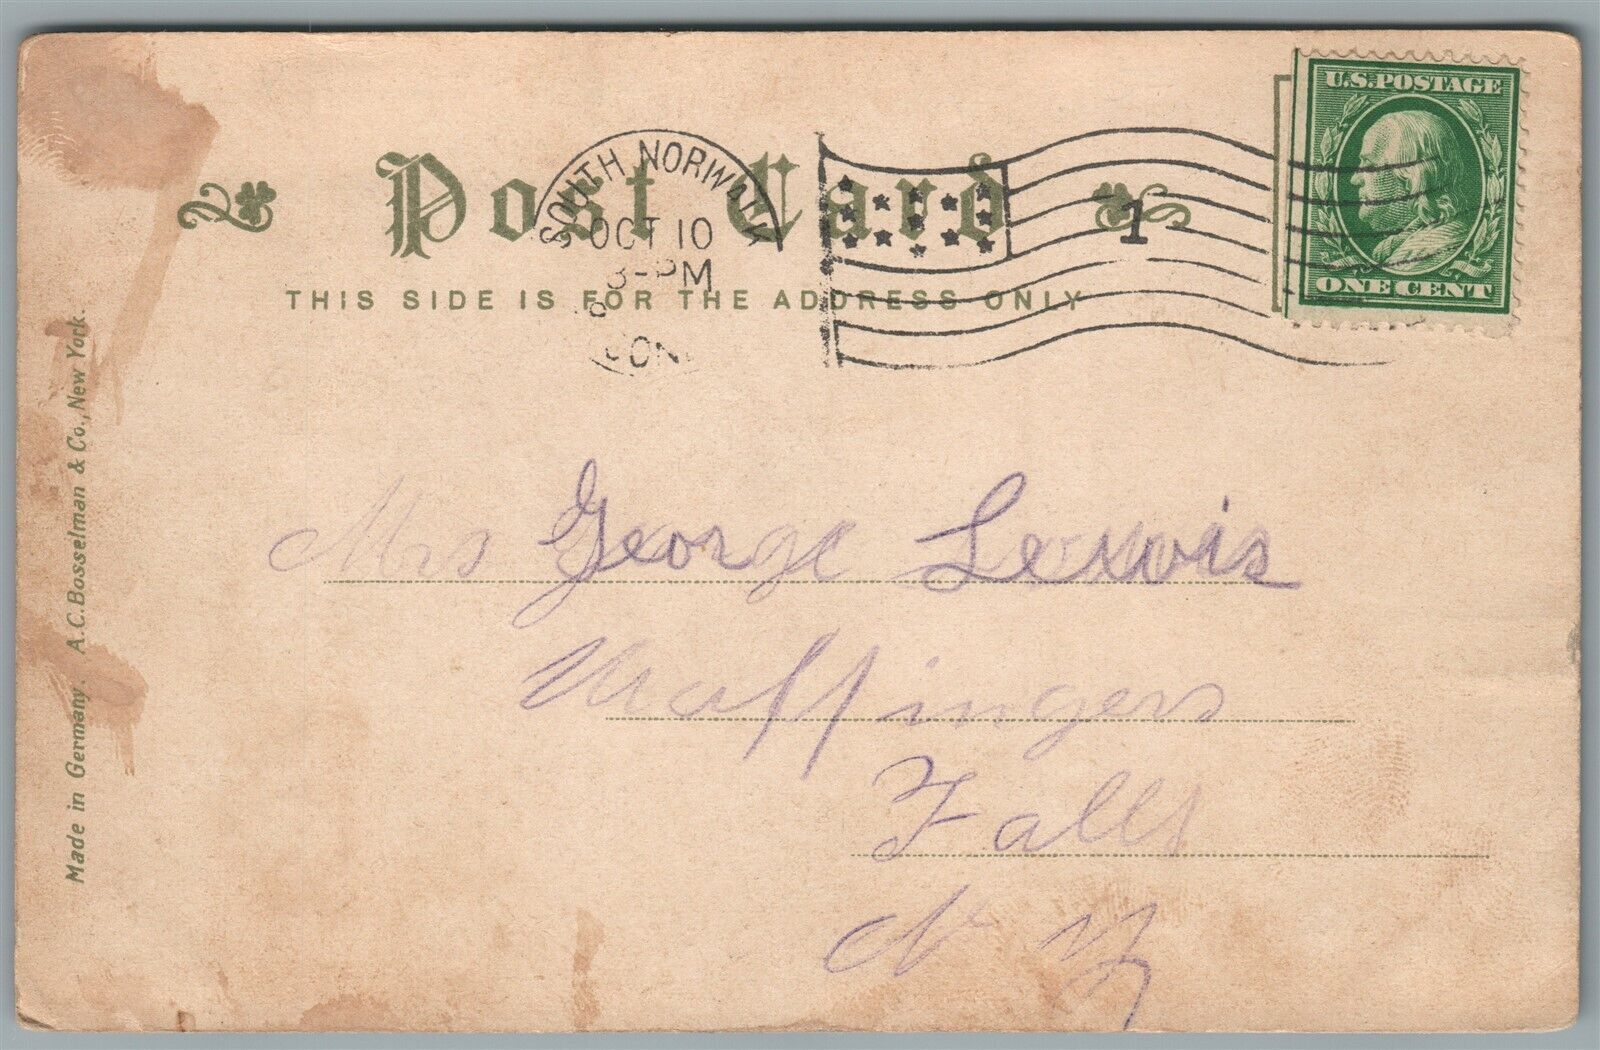 Post Card
THIS SIDE IS FOR THE ADDRESS ONLY
SOUTH NORWALK
OCT 10
PM
CONN
1
U.S. POSTAGE
ONE CENT
Made in Germany. A.C. Bosselman & Co., New York.
Mrs George Lewis
Waffingers
Falls
N Y